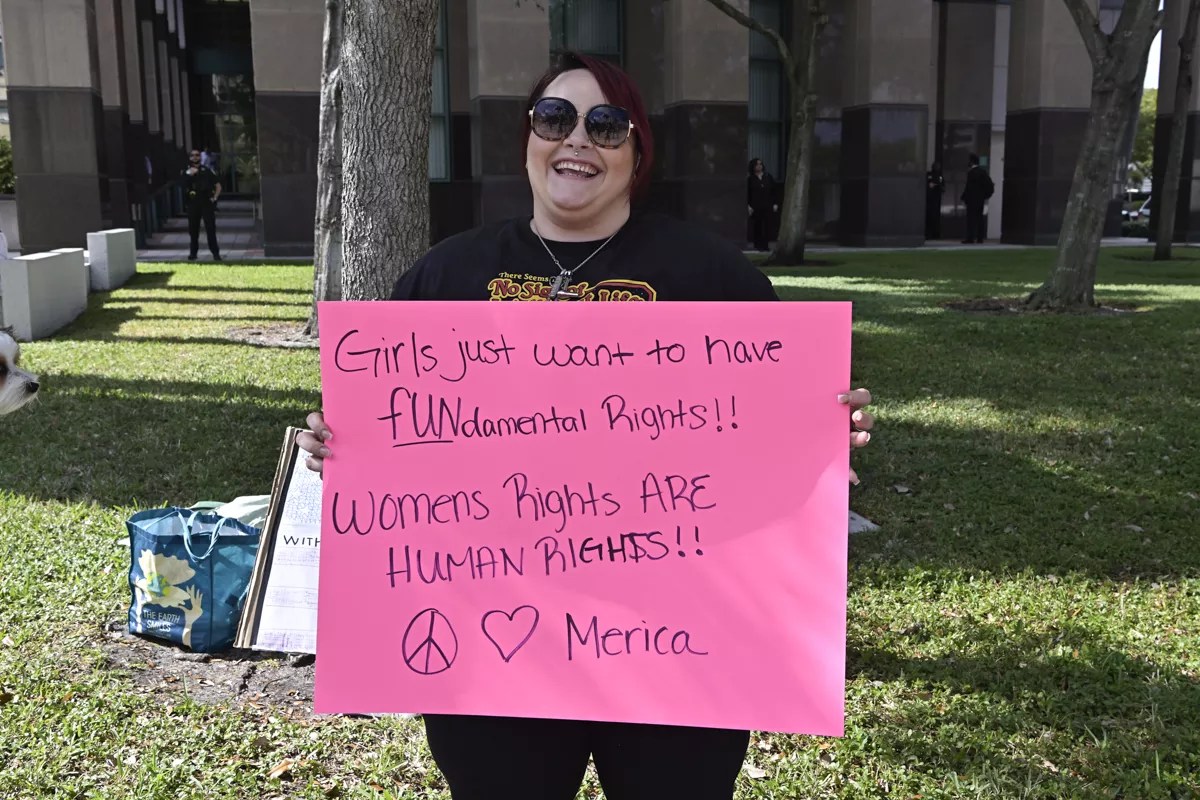 There Seems
No Signs of
Life
Girls just want to have
fUNdamental Rights!!
Womens Rights ARE
HUMAN RIGHTS!!
Merica
WITH
THE EARTH
SMILES